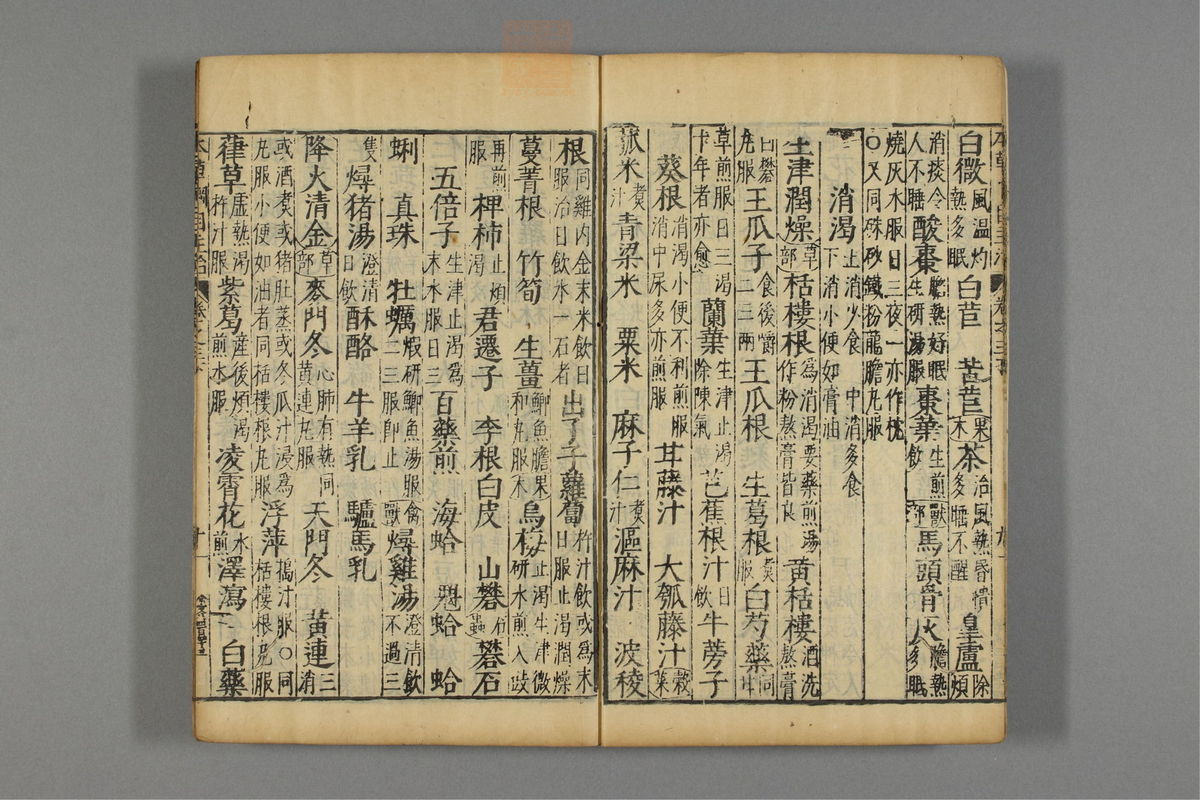 白微風溫灼熱多眠白苣　苦苣果木茶治風熱昏憒多睡不醒皇蘆除煩
消痰令人不睡酸棗膽熱好眠生研湯服棗葉生煎飲獸部馬頭骨灰膽熱多眠
燒灰水服日三夜一亦作枕○又同硃砂鐵粉龍膽丸服
消渴上消少食　中消多食下消小便如膏油
生津潤燥草部栝樓根為消渴要藥煎湯作粉熬膏皆良黃栝樓酒洗熬膏
白礬丸服王瓜子食後嚼二三兩王瓜根　生葛根煮服白芍藥同甘
草煎服日三渴十年者亦愈蘭葉生津止渴除陳氣芭蕉根汁日飲牛蒡子
葵根消渴小便不利煎服消中尿多亦煎服甘藤汁　大瓠藤汁穀菜
菰米煮汁青粱米　粟米　麻子仁煮汁漚麻汁　波稜
根同雞內金末米飲日服治日飲水一石者出了子蘿蔔杵汁飲或為末日服止渴潤燥
蔓菁根　竹筍　生薑鯽魚膽和丸服果木烏梅止渴生津微研水煎入豉
再煎服椑柿止煩渴君遷子　李根白皮　山礬石蟲礬石
五倍子生津止渴為末水服日三百藥煎　海蛤　魁蛤　蛤
蜊　真珠　牡蠣煅研鯽魚湯服二三服即止禽獸燖雞湯澄清飲不過三
隻燖豬湯澄清日飲酥酪　牛羊乳　驢馬乳
降火清金草部麥門冬心肺有熱同黃連丸服天門冬　黃連三消
或酒煮或豬肚蒸或冬瓜汁浸為丸服小便如油者同栝樓根丸服浮萍搗汁服○同栝樓根丸服
葎草虛熱渴杵汁服紫葛產後煩渴煎水服凌霄花水煎澤瀉　白藥